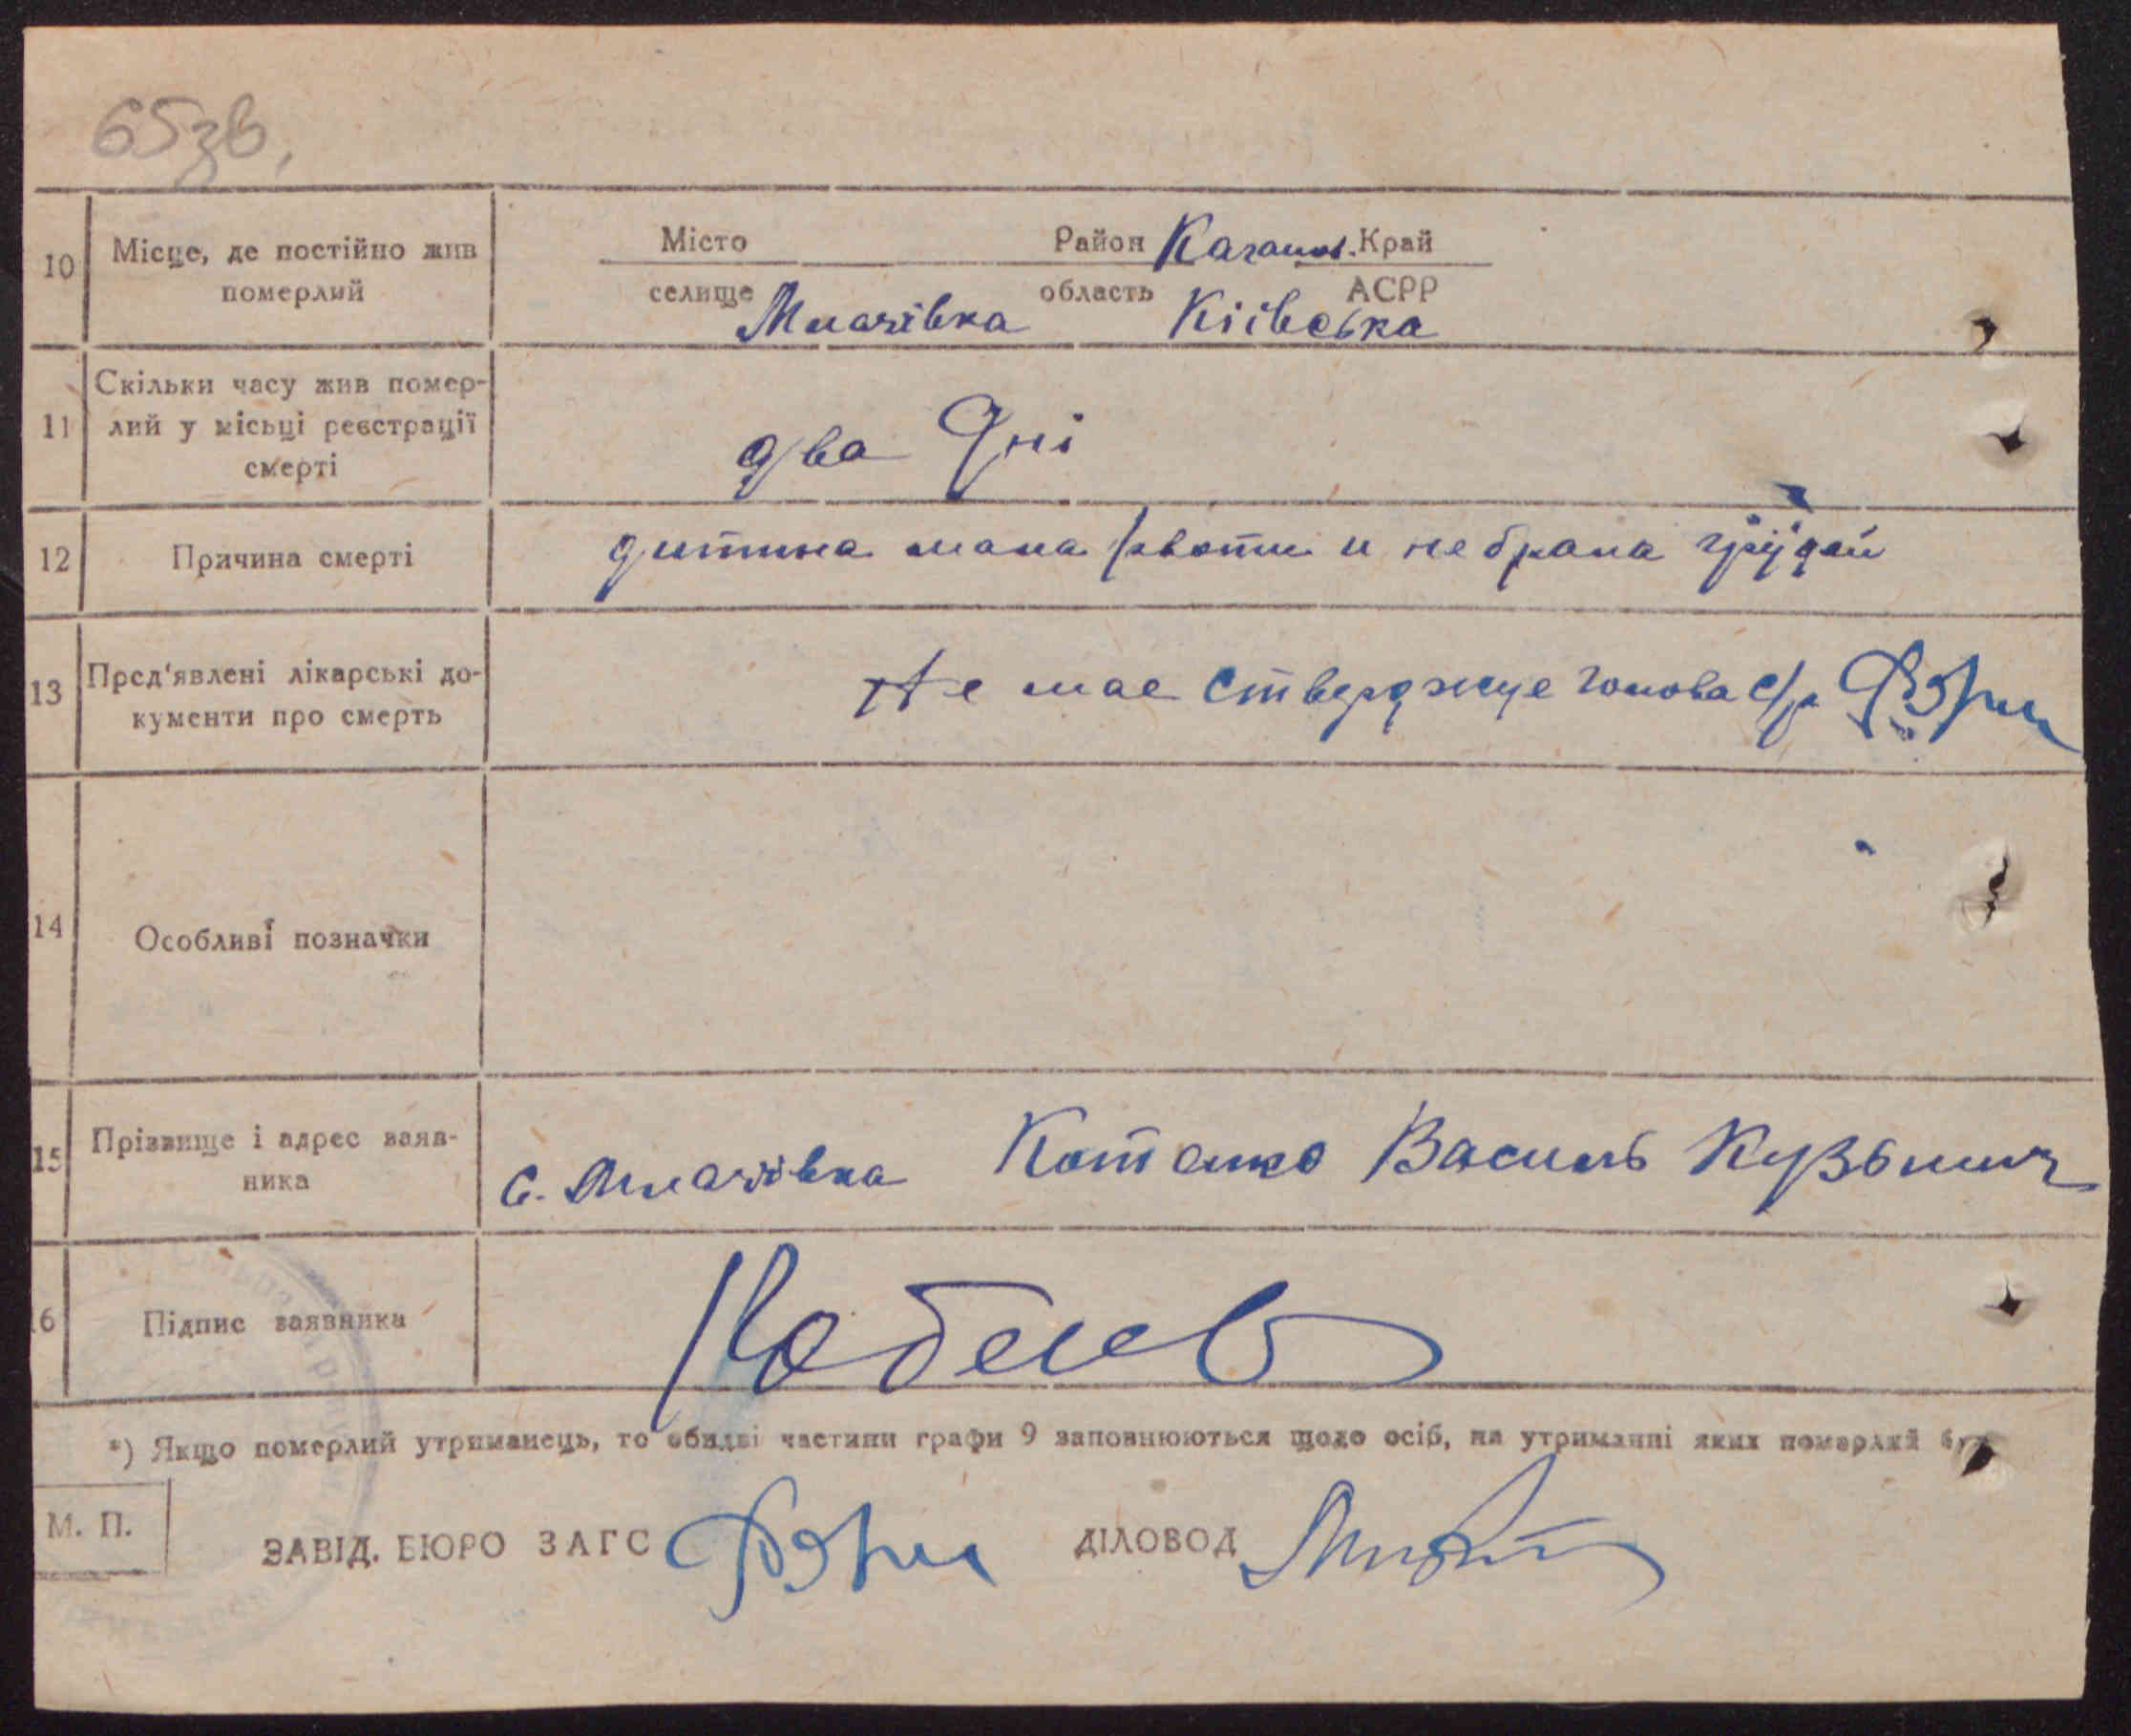 65зв.
10 Місце, де постійно жив померлий
Місто Район Каганов. Край
селище Млачівка область Кіівська АСРР
11 Скільки часу жив помер-
лий у місьці реєстрації
смерті
два дні
12 Причина смерті
дитина мала рвоти и не брала грудей
13 Пред'явлені лікарські до-
кументи про смерть
Не мае стверджуе голова с/р
14 Особливі позначки
15 Прізвище і адрес заяв-
ника
с. Млачівка Котенко Василь Кузьмич
16 Підпис заявника
*) Якщо померлий утриманець, то обидві частини графи 9 заповнюються щодо осіб, на утриманні яких померлий
М. П.
ЗАВІД. БЮРО ЗАГС ДІЛОВОД